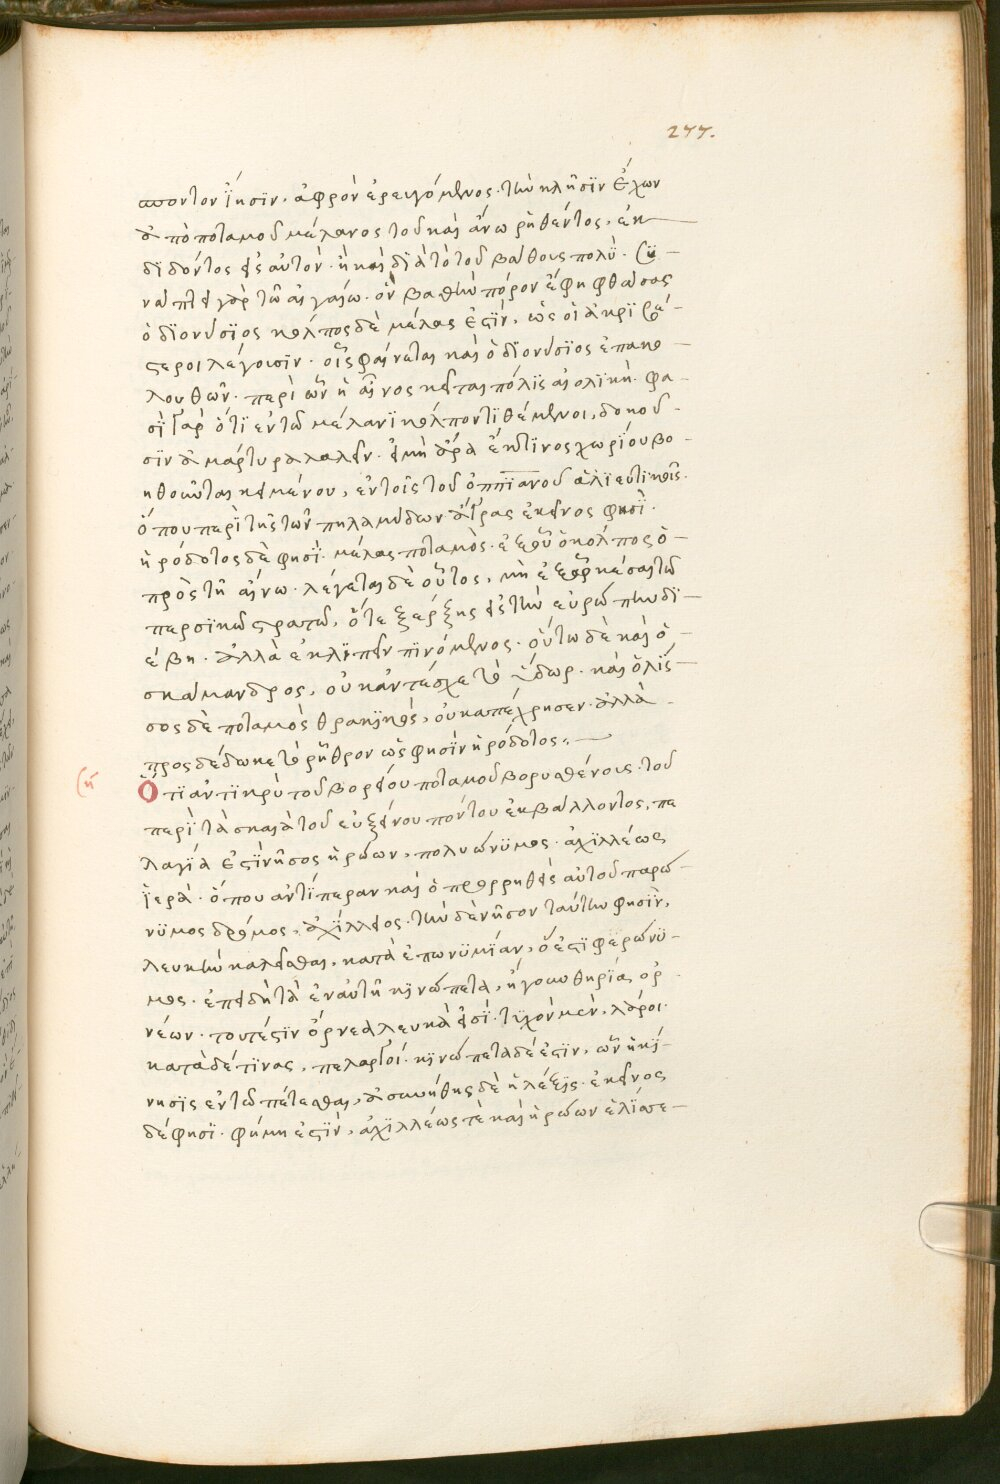 277.
πόντον ἵησιν, ἀφρὸν ἐρευγόμενος· τὴν κλῆσιν ἔχων
ἀπὸ ποταμοῦ μέλανος τοῦ καὶ ἄνω ῥηθέντος, ἐκ
διδόντος εἰς αὐτὸν· ἢ καὶ διὰ τὸ τοῦ βάθους πολὺ· συ
νάπτει γὰρ τῶ αἰγαίω· ὃν βαθὺν πόρον ἔφη φθάσας
ὁ διονύσιος κόλπος δὲ μέλας ἐστὶν, ὡς οἱ ἀκριβέ
στεροι λέγουσιν· οἷς φαίνεται καὶ ὁ διονύσιος ἐπακο
λουθῶν· περὶ ὧν ἡ αἶνος κεῖται πόλις αἰολικὴ· φα
σὶ γὰρ ὅτι ἐν τῶ μέλανι κόλπον τιθέμενοι, δοκοῦ
σιν ἀμάρτυρα λαλεῖν· εἰ μὴ ἄρα ἔκ τινος χωρίου βο
ηθοῦνται κειμένου, ἐν τοῖς τοῦ ὀππιανοῦ ἁλιευτικοῖς·
ὅπου περὶ τῆς τῶν πηλαμύδων ἄγρας ἐκεῖνος φησὶ·
ἡρόδοτος δὲ φησὶ· μέλας ποταμὸς· ἐξ οὗ ὁ κόλπος ὁ
πρὸς τῆ αἴνω· λέγεται δὲ οὗτος, μὴ ἐξαρκέσαι τῶ
περσικῶ στρατῶ, ὅτε ξέρξης εἰς τὴν εὐρώπην δι
έβη· ἀλλὰ ἐκλιπεῖν πινόμενος· οὕτω δὲ καὶ ὁ
σκάμανδρος, οὐκ ἀντέσχε τὸ ὕδωρ· καὶ ὁ λίσ
σος δὲ ποταμὸς θρακικὸς, οὐκ ἀπέχρησεν· ἀλλὰ
προσδέδωκε τὸ ῥεῖθρον ὥς φησὶν ἡρόδοτος:
Ὅτι ἀντικρὺ τοῦ βορείου ποταμοῦ βορυσθένους· τοῦ
περὶ τὰ σκαιὰ τοῦ εὐξείνου πόντου ἐκβάλλοντος, πε
λαγία ἐστὶ νῆσος ἡρώων, πολυώνυμος· ἀχιλλέως
ἱερὰ· ὅπου ἀντίπεραν καὶ ὁ προρρηθεὶς αὐτοῦ παρώ
νυμος δρόμος, ἀχίλλειος· τὴν δὲ νῆσον ταύτην φησὶν,
λευκὴν καλεῖσθαι, κατὰ ἐπωνυμίαν, ὅ ἐστι φερώνυ
μος· ἐπειδὴ τὰ ἐν αὐτῆ κινώπετα, ἤγουν θηρία, ὀρ
νέων· τουτέστιν ὄρνεα λευκὰ εἰσὶ· τυχὸν μὲν, λάροι·
κατὰ δέ τινας, πελαργοί· κινώπετα δέ ἐστιν, ὧν ἡ κί
νησις ἐν τῶ πέτεσθαι, ἀσυνήθης δὲ ἡ λέξις· ἐκεῖνος
δέ φησι· φήμη ἐστὶν, ἀχιλλέως τὲ καὶ ἡρώων ἑλίσσε